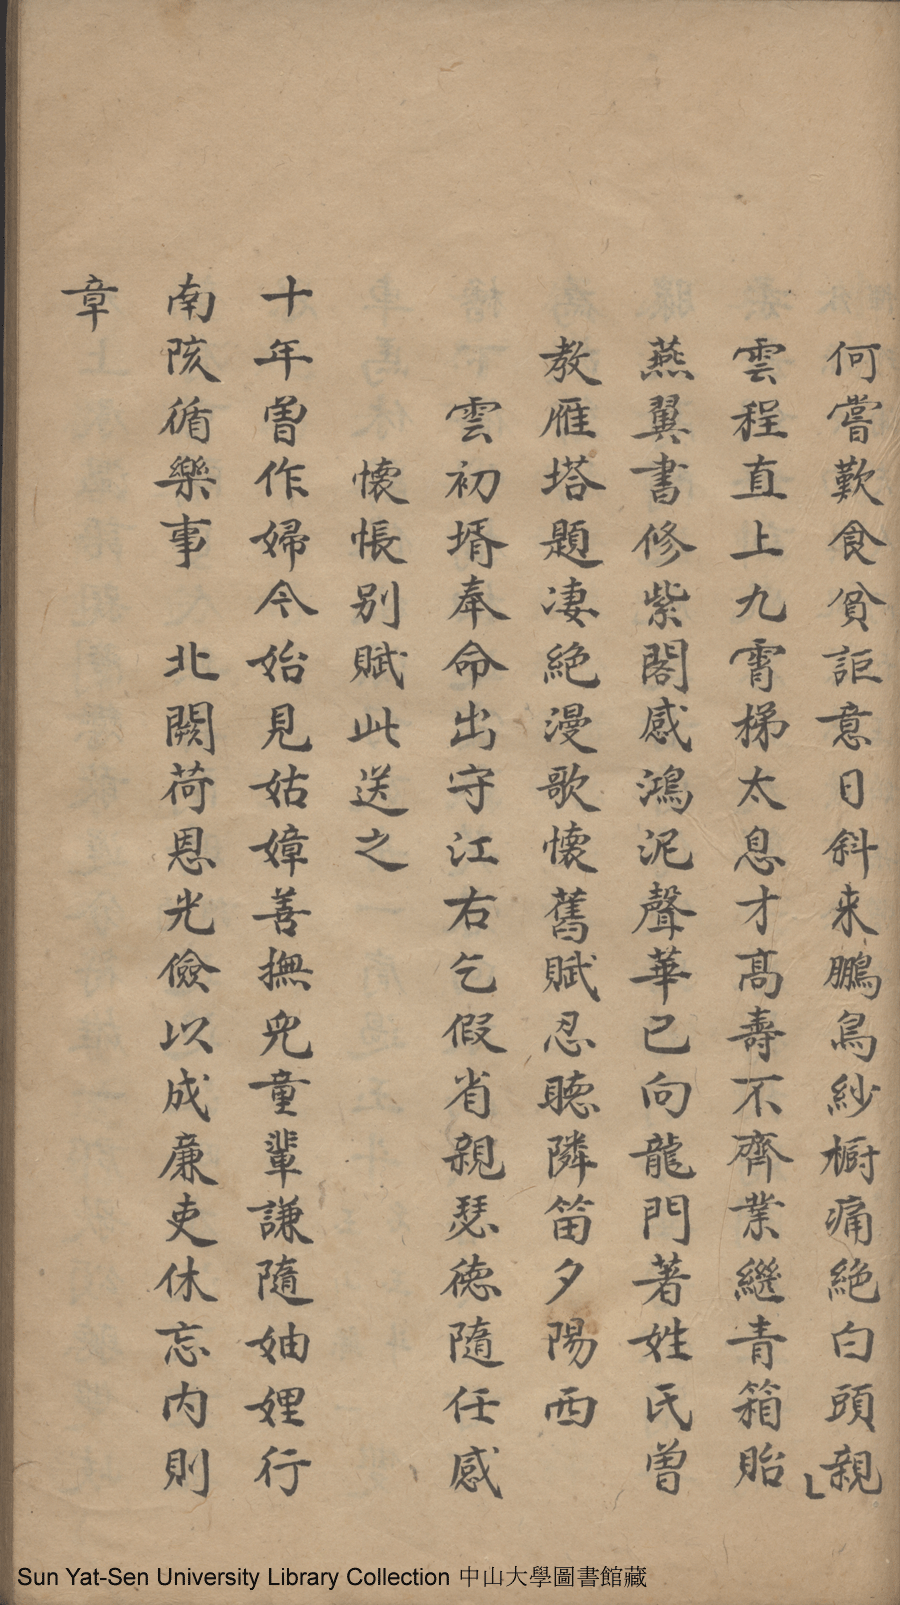 何嘗歎食貧詎意日斜来鵬鳥紗櫥痛絶白頭親
雲程直上九霄梯太息才髙壽不齊業繼青箱貽
燕翼書修紫閣感鴻泥聲華已向龍門著姓氏曽
教雁塔題凄絶漫歌懷舊賦忍聴隣笛夕陽西
雲初壻奉命出守江右乞假省親瑟徳隨任感
懐悵别賦此送之
十年曽作婦今始見姑嫜善撫皃童輩謙隨妯娌行
南陔循樂事 北闕荷恩光儉以成廉吏休忘内則
章
Sun Yat-Sen University Library Collection 中山大學圖書館藏